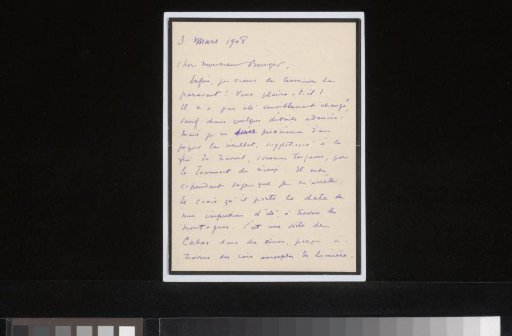 3 Mars 1908
Cher Monsieur Bonger,
Enfin, je viens de terminer le
paravent! Vous plaira-t-il!
Il n'a pas été sensiblement changé
sauf dans quelques détails
mais je ne puis
payer les résultats, suggestions à la
fin du travail, comme toujours, par
le tourment du mieux. Il est
cependant sage que je m'arrête.
Je crois qu'il porte la date de
mes impressions d'été à travers les
montagnes. C'est une visite de
dans des
travers des rais de lumière.